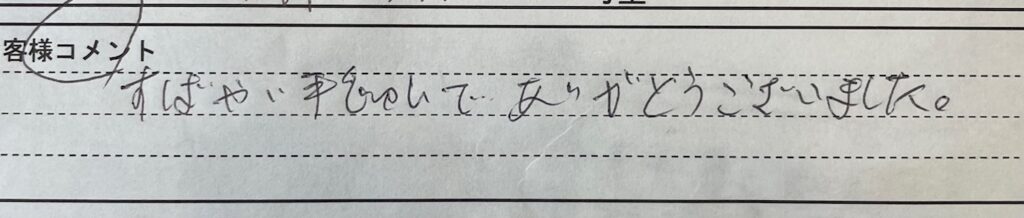 客様コメント
すばやい手配いで ありがとうございました。